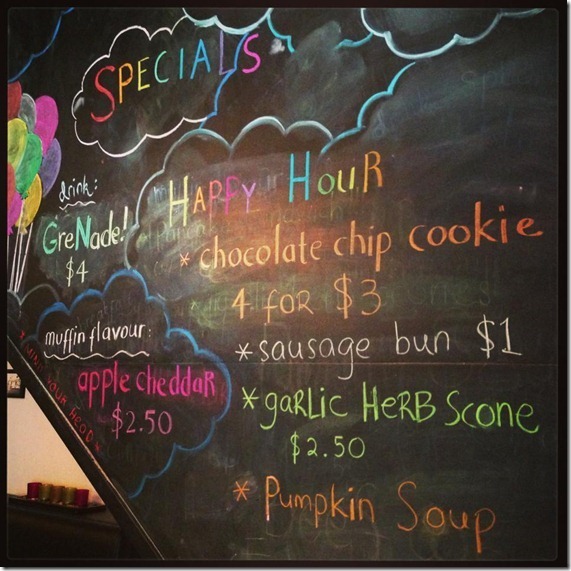 SPECIALS
drink:
GreNade!
$4
muffin flavour:
apple cheddar
$2.50
* MIND YOUR HEAD *
HAPPY HOUR
* chocolate chip cookie
4 FOR $3
* sausage bun $1
* garlic HERB SCONE
$2.50
* Pumpkin Soup